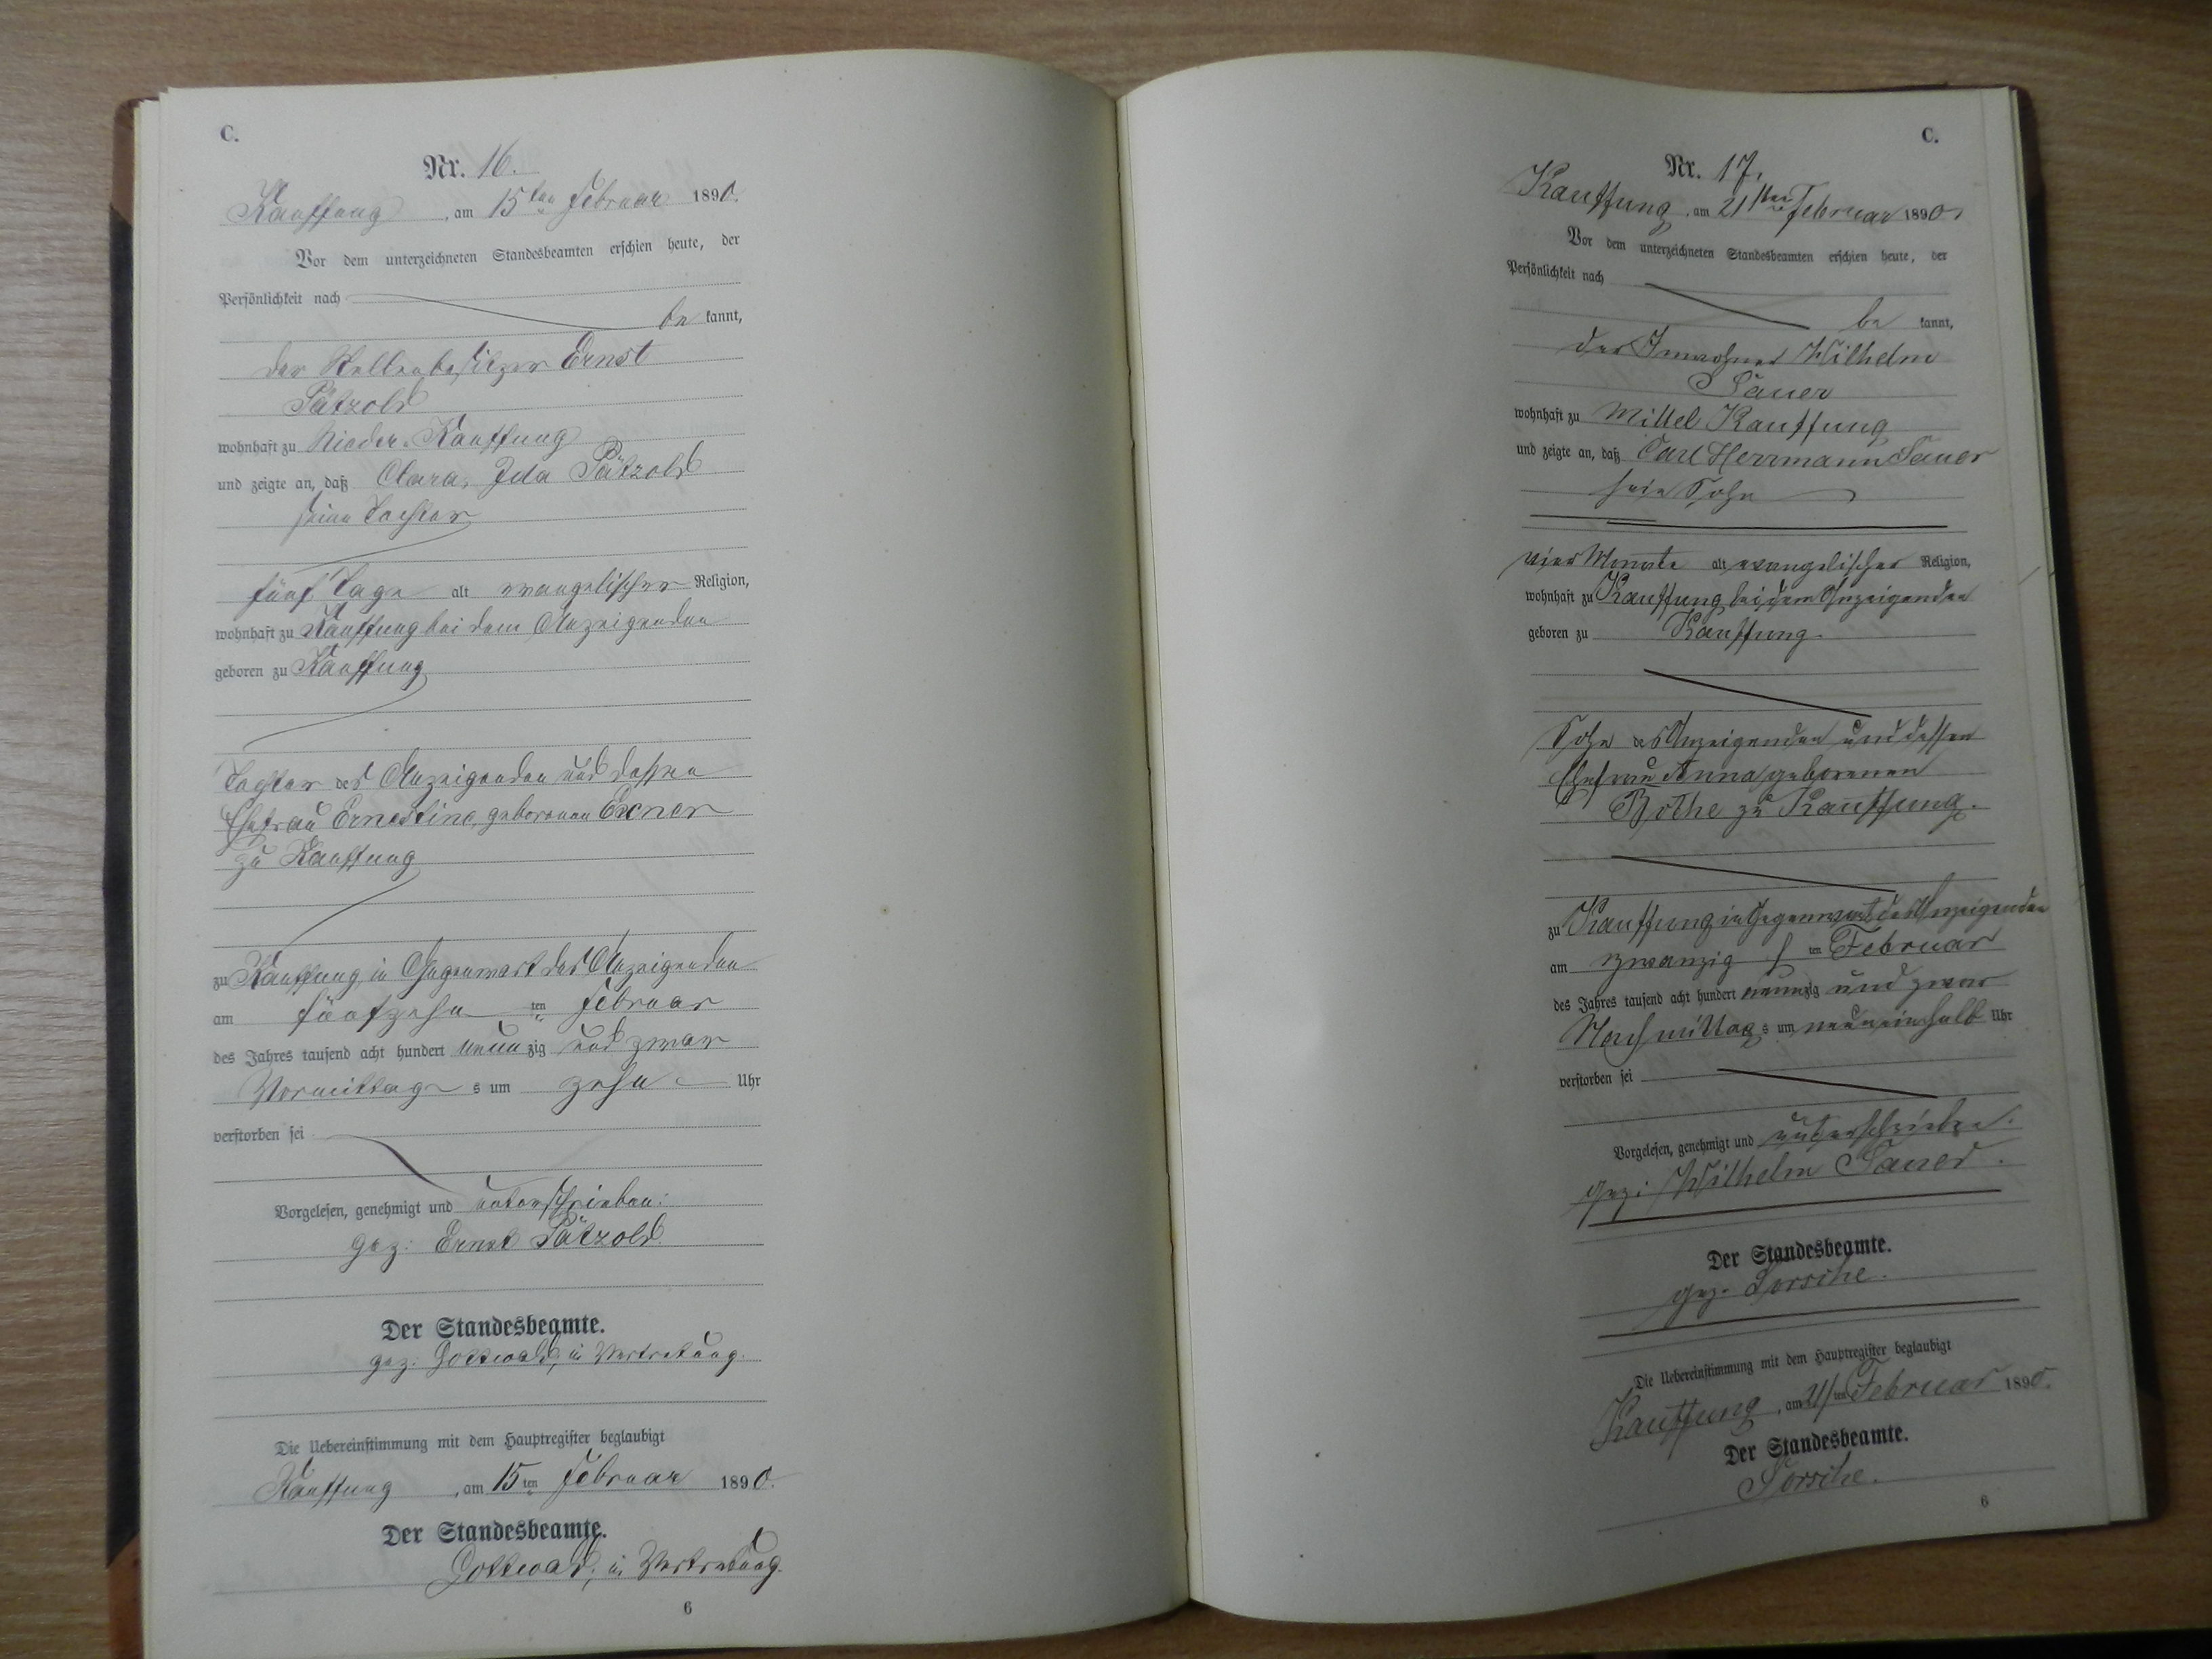 C.
Nr. 16.
Kauffung, am 15ten Februar 1890.
Vor dem unterzeichneten Standesbeamten erschien heute, der
Persönlichkeit nach
be kannt,
der Stellenbesitzer Ernst
Pätzold
wohnhaft zu Nieder-Kauffung
und zeigte an, daß Clara, Ida Pätzold
seine Tochter
fünf Tage alt evangelischer Religion,
wohnhaft zu Kauffung bei dem Anzeigenden
geboren zu Kauffung
Tochter des Anzeigenden und dessen
Ehefrau Ernestine, geborenen Exner
zu Kauffung
zu Kauffung in Gegenwart des Anzeigenden
am fünfzehn ten Februar
des Jahres tausend acht hundert neunzig und zwar
Vormittag s um zehn Uhr
verstorben sei
Vorgelesen, genehmigt und unterschrieben:
gez: Ernst Pätzold.
Der Standesbeamte.
gez: Gottwald, in Vertretung.
Die Uebereinstimmung mit dem Hauptregister beglaubigt
Kauffung, am 15ten Februar 1890.
Der Standesbeamte.
Gottwald, in Vertretung.
6
C.
Nr. 17.
Kauffung, am 21ten Februar 1890.
Vor dem unterzeichneten Standesbeamten erschien heute, der
Persönlichkeit nach
be kannt,
der Inwohner Wilhelm
Sauer
wohnhaft zu Mittel Kauffung
und zeigte an, daß Carl Herrmann Sauer
sein Sohn
vier Monate alt evangelischer Religion,
wohnhaft zu Kauffung bei dem Anzeigenden
geboren zu Kauffung.
Sohn des Anzeigenden und dessen
Ehefrau Anna geborenen
Bothe zu Kauffung.
zu Kauffung in Gegenwart des Anzeigenden
am zwanzig s ten Februar
des Jahres tausend acht hundert neunzig und zwar
Nachmittag s um neuneinhalb Uhr
verstorben sei
Vorgelesen, genehmigt und unterschrieben.
gez: Wilhelm Sauer.
Der Standesbeamte.
gez.
Die Uebereinstimmung mit dem Hauptregister beglaubigt
Kauffung, am 21ten Februar 1890.
Der Standesbeamte.
6